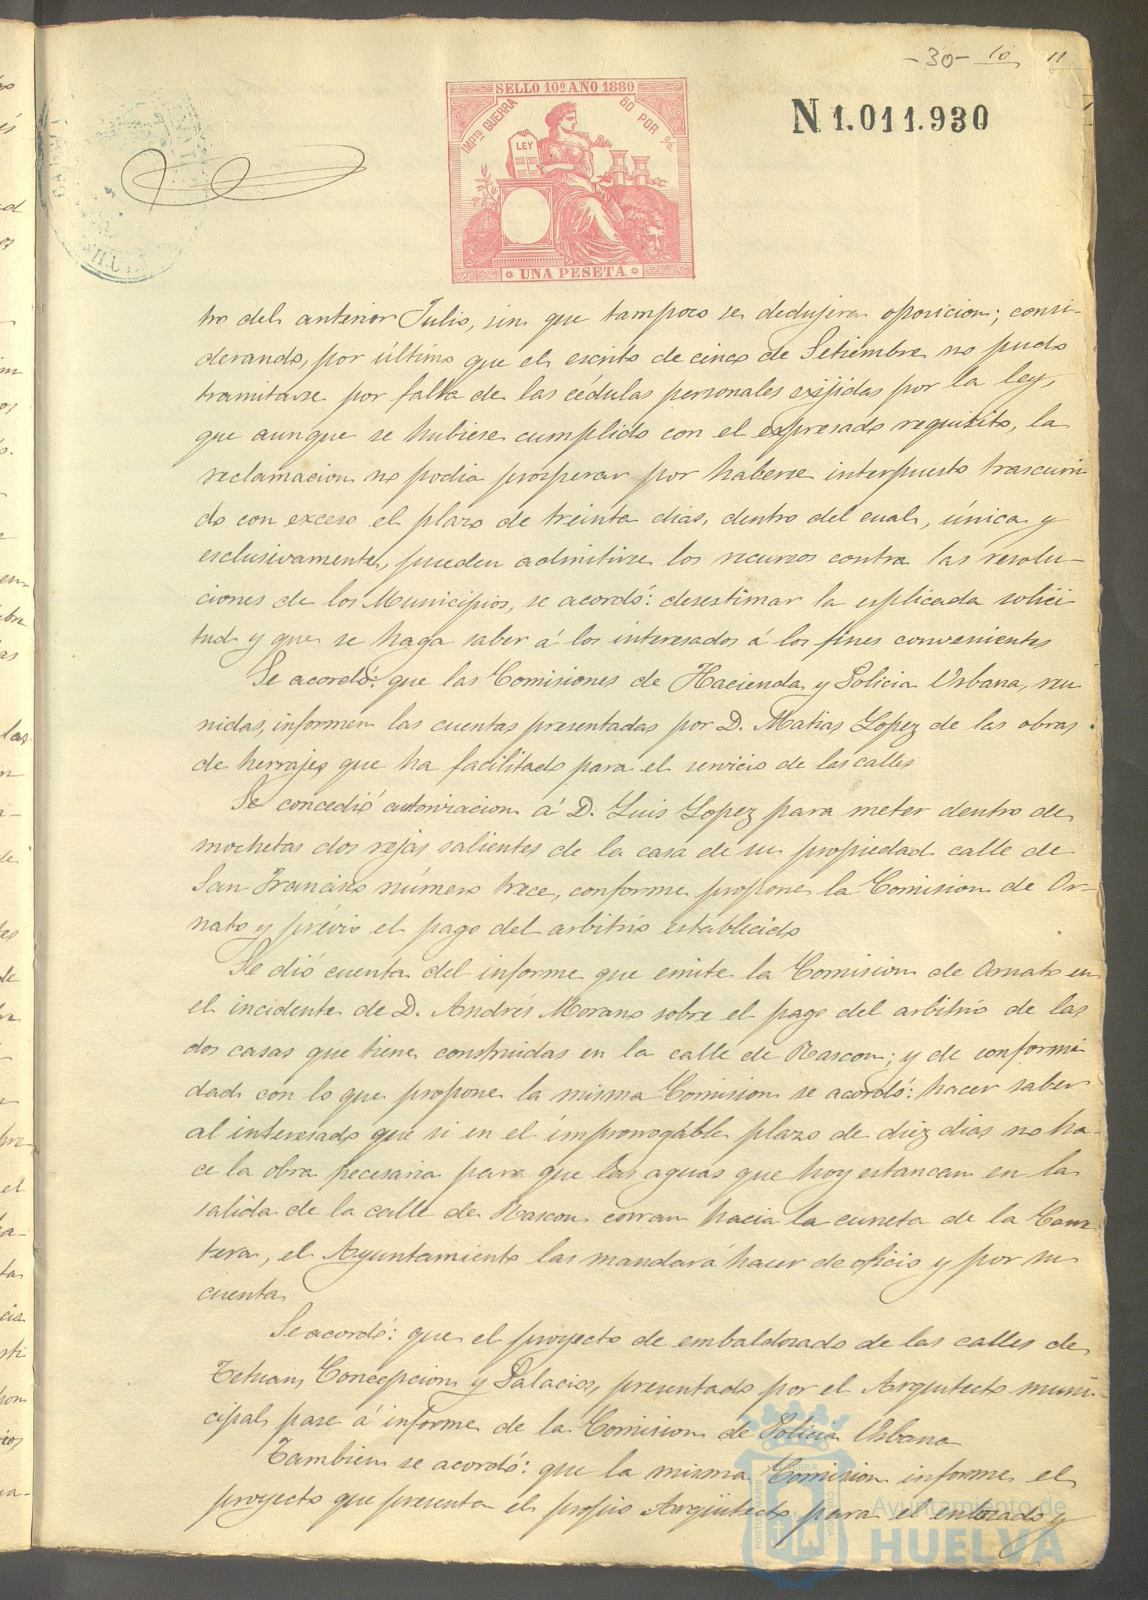 -30- 10 11
SELLO 10º AÑO 1880
IMPTO GUERRA 60 POR %
LEY
UNA PESETA
N 1.011.930
tro del anterior Julio, sin que tampoco se dedujera oposicion; consi-
derando, por último que el escrito de cinco de Setiembre no pudo
tramitarse por falta de las cédulas personales exijidas por la ley,
que aunque se hubiese cumplido con el expresado requisito, la
reclamacion no podia prosperar por haberse interpuesto trascurri
do con exceso el plazo de treinta dias, dentro del cual, única y
esclusivamente, pueden admitirse los recursos contra las resolu-
ciones de los Municipios, se acordó: desestimar la esplicada solici
tud y que se haga saber á los interesados á los fines convenientes
Se acordó: que las Comisiones de Hacienda y Policia Urbana, reu
nidas, informen las cuentas presentadas por D. Matias Lopez de las obras
de herrajes que ha facilitado para el servicio de las calles
Se concedió autorizacion á D. Luis Lopez para meter dentro de
mochetas dos rejas salientes de la casa de su propiedad calle de
San Francisco número trece, conforme propone la Comision de Or-
nato y prévio el pago del arbitrio establecido
Se dió cuenta del informe que emite la Comision de Ornato en
el incidente de D. Andrés Morano sobre el pago del arbitrio de las
dos casas que tiene construidas en la calle de Rascon; y de conformi
dad con lo que propone la misma Comision se acordó: hacer saber
al interesado que si en el improrogable plazo de diez dias no ha-
ce la obra necesaria para que las aguas que hoy estancan en la
salida de la calle de Rascon corran hacia la cuneta de la Carre
tera, el Ayuntamiento las mandará hacer de oficio y por su
cuenta
Se acordó: que el proyecto de embaldosado de las calles de
Tetuan, Concepcion y Palacios, presentado por el Arquitecto muni-
cipal, pase á informe de la Comision de Policia Urbana
Tambien se acordó: que la misma Comision informe el
proyecto que presenta el propio Arquitecto para el entozado y
Ayuntamiento de
HUELVA